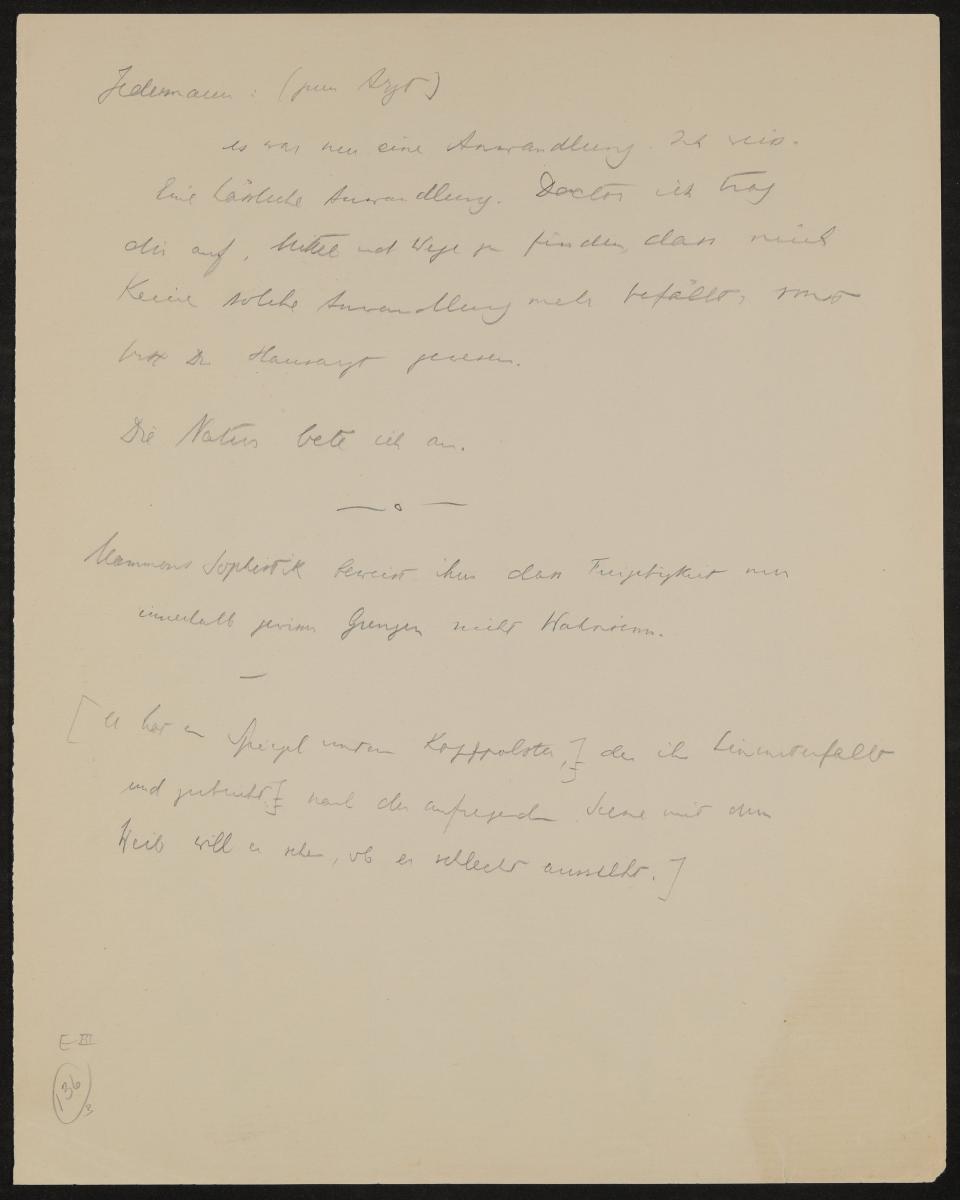 Jedermann: (zum Arzt)
es war nur eine Anwandlung. Ich weiss.
Eine lässliche Anwandlung. Doctor ich trag
dir auf, Mittel und Wege zu finden, dass mich
Keine solche Anwandlung mehr befällt, sonst
bist Du Hausarzt gewesen.
Die Natur bete ich an.
— o —
Mammons Sophistik beweist ihm dass Freigebigkeit nur
innerhalb gewisser Grenzen nicht Wahnsinn.
—
[er hat en Spiegel unterm Kopfpolster,] der ihm hinunterfällt
und zerbricht] nach der aufregenden Scene mit dem
Weib will er sehen, ob er schlecht aussieht.]
E III
136
3